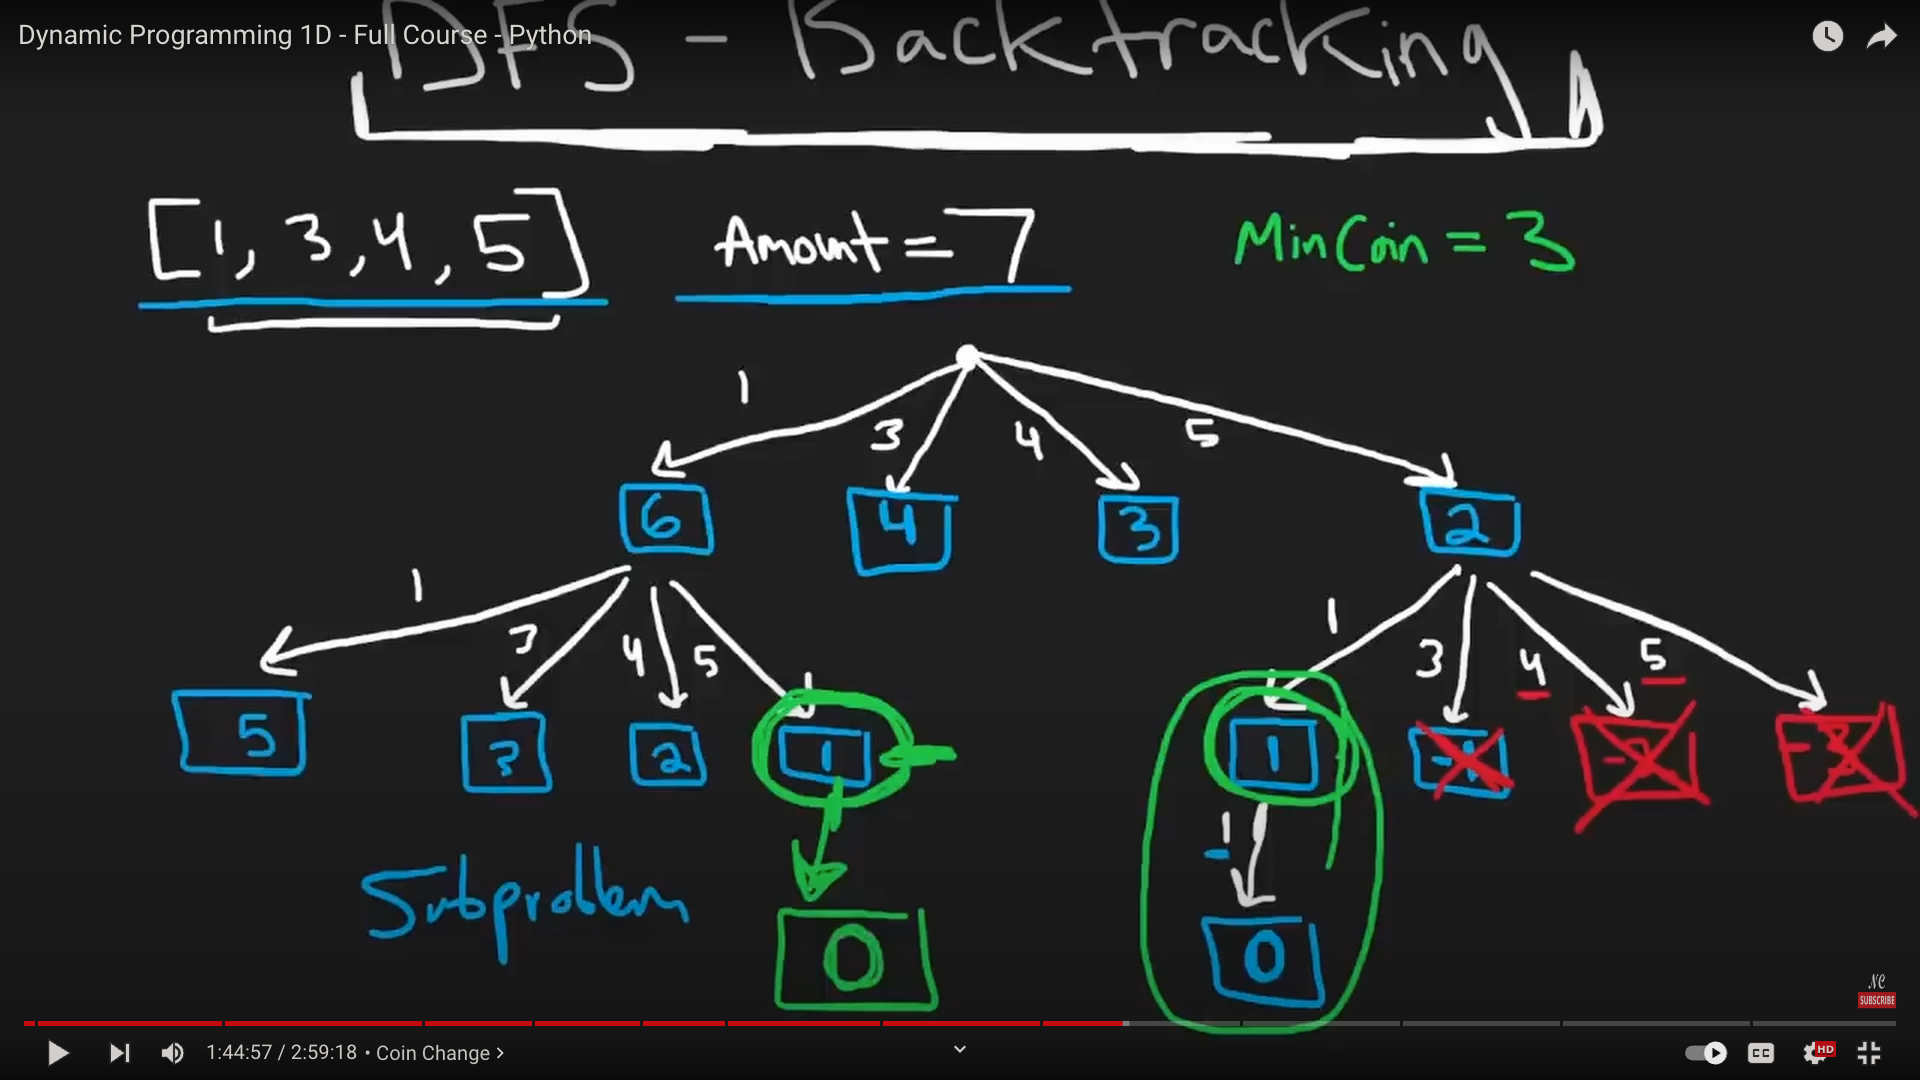 Dynamic Programming 1D - Full Course - Python
DFS - Backtracking
[1, 3, 4, 5] Amount = 7 MinCoin = 3
1 3 4 5
6 4 3 2
1 3 4 5 1 3 4 5
5 3 2 1 1 -1 -2 -3
-1
Subproblem
0 0
NC
SUBSCRIBE
1:44:57 / 2:59:18 • Coin Change >
CC HD